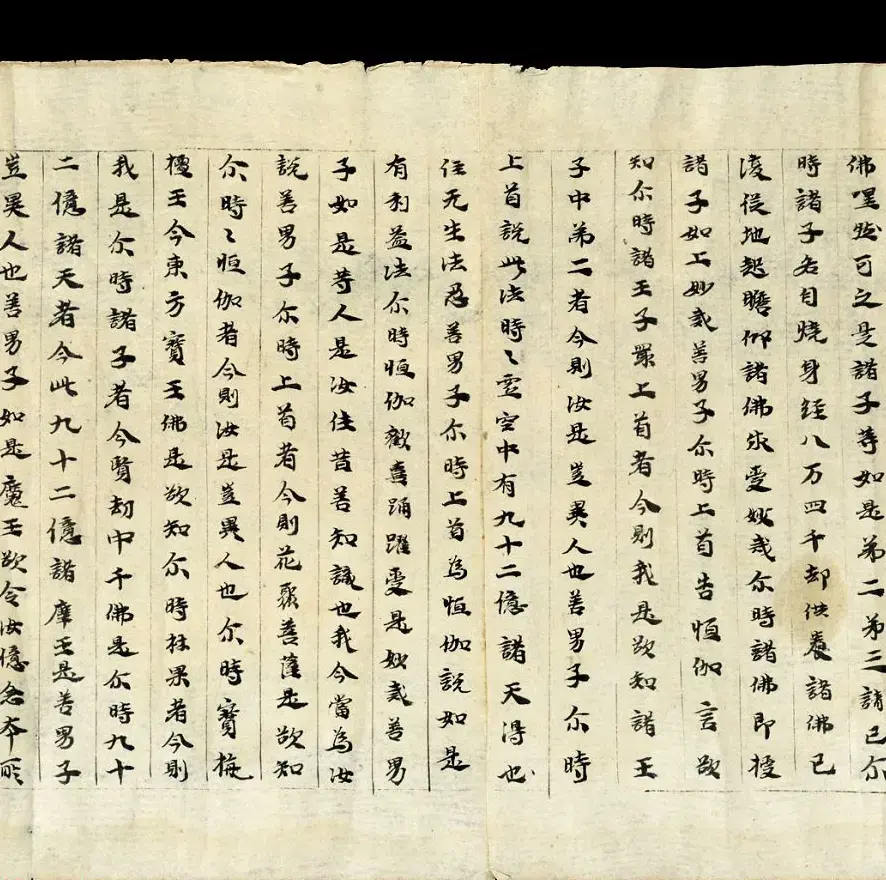 佛嘿然可之是諸子等如是第二第三請已尒
時諸子各自燒身經八万四千劫供養諸佛已
復從地起瞻仰諸佛求受妙戒尒時諸佛即授
諸子如上妙戒善男子尒時上首告恒伽言欲
知尒時諸王子眾上首者今則我是欲知諸王
子中第二者今則汝是豈異人也善男子尒時
上首說此法時〻虛空中有九十二億諸天得也
住无生法忍善男子尒時上首為恒伽說如是
有利益法尒時恒伽歡喜踊躍受是妙戒善男
子如是等人是汝往昔善知識也我今當為汝
說善男子尒時上首者今則花聚菩薩是欲知
尒時〻恒伽者今則汝是豈異人也尒時寶栴
檀王今東方寶王佛是欲知尒時林果者今則
我是尒時諸子者今賢劫中千佛是尒時九十
二億諸天者今此九十二億諸魔王是善男子
豈異人也善男子如是魔王欲令汝憶念本所